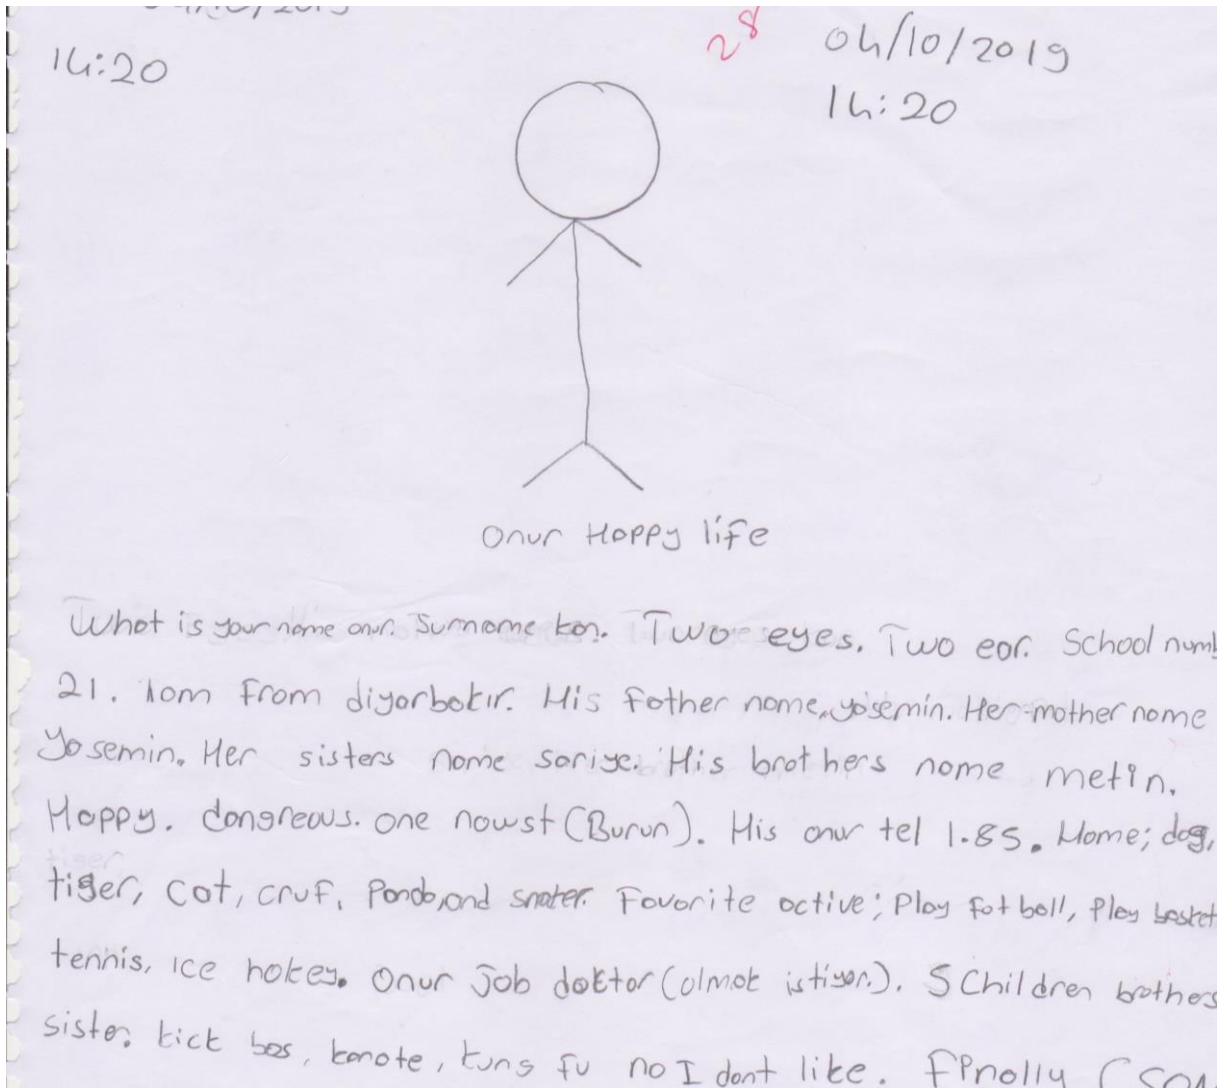 14:20
28
04/10/2019
14:20
Onur Happy life
What is your name onur. Surname kan. Two eyes. Two ear. School numb
21. Iam from diyarbakır. His father name, yasemin. Her mother name
Yasemin. Her sisters name sariye. His brothers name metin.
Happy. dangreous. one nowst (Burun). His onur tel 1.85. Home; dog,
tiger, cat, cruf, Panda, and snater. Favorite active; Play fotball, Play basket
tennis, ice hokey. Onur Job doktor (olmak istiyor.). 5 Children brothers
sister. kick bos, karate, kung fu no I dont like. Finally (son